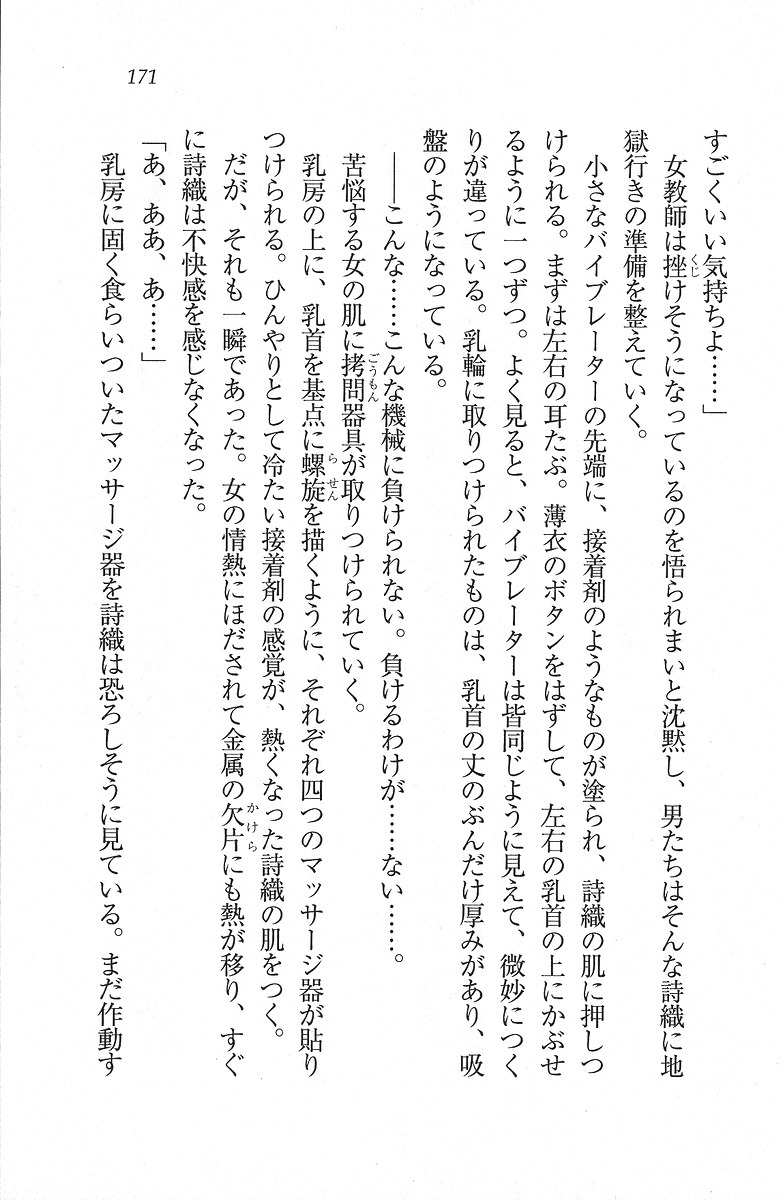 171
すごくいい気持ちよ……」
　女教師は挫けそうになっているのを悟られまいと沈黙し、男たちはそんな詩織に地
獄行きの準備を整えていく。
　小さなバイブレーターの先端に、接着剤のようなものが塗られ、詩織の肌に押しつ
けられる。まずは左右の耳たぶ。薄衣のボタンをはずして、左右の乳首の上にかぶせ
るように一つずつ。よく見ると、バイブレーターは皆同じように見えて、微妙につく
りが違っている。乳輪に取りつけられたものは、乳首の丈のぶんだけ厚みがあり、吸
盤のようになっている。
――こんな……こんな機械に負けられない。負けるわけが……ない……。
苦悩する女の肌に拷問器具が取りつけられていく。
　乳房の上に、乳首を基点に螺旋を描くように、それぞれ四つのマッサージ器が貼り
つけられる。ひんやりとして冷たい接着剤の感覚が、熱くなった詩織の肌をつく。
　だが、それも一瞬であった。女の情熱にほだされて金属の欠片にも熱が移り、すぐ
に詩織は不快感を感じなくなった。
「あ、ああ、あ……」
　乳房に固く食らいついたマッサージ器を詩織は恐ろしそうに見ている。まだ作動す